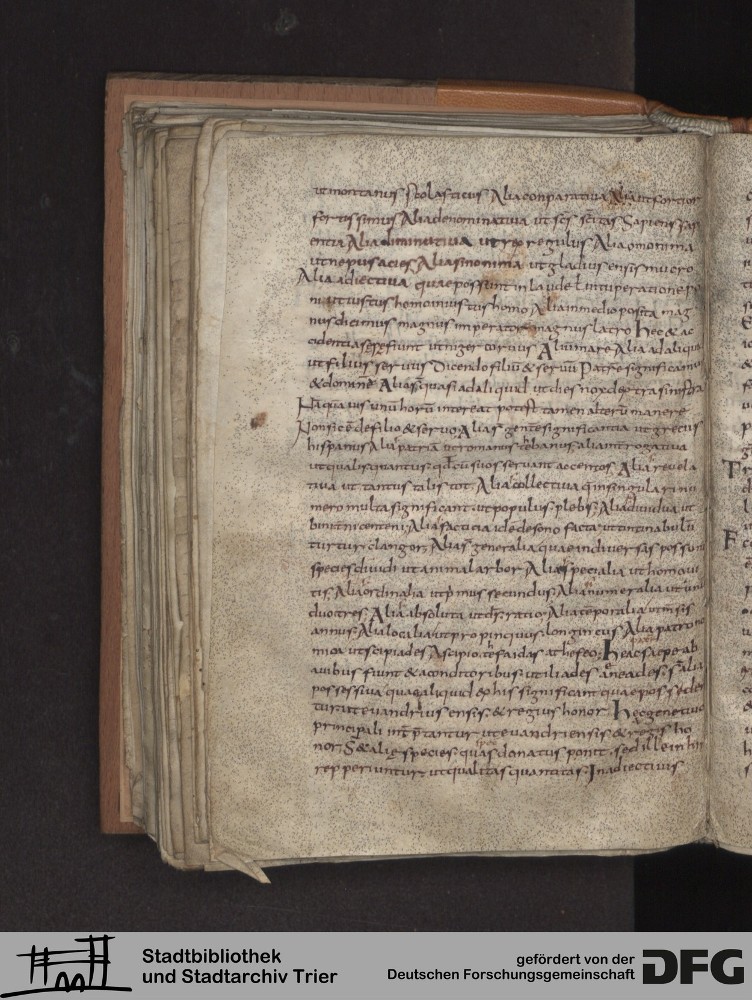 ut montanus scolasticus Alia conparatiua Alia ut fortior
fortissimus Alia denominatiua ut scs scitas Sapiens sapi
entia Alia diminutiua ut rex regulus Alia omonima
ut nepus acies Alia sinonima ut gladius ensis mucro
Alia adiectiua quae possunt in laude l uituperatione po
ni ut iustus homo iniustus homo Alia in medio posita mag
nus dicimus magnus imperator magnus latro hec & ac
cidentia fiunt ut niger coruus Album mare Alia ad aliquid
ut filius seruus Dicendo filiū & seruū Patrē significamus
& dominē Alia quasi ad aliquid ut dies nox dextra sinistra
quauis unū horū intereat potest tamen alterū manere
de filio & seruo Alia gentē significantia ut grecus
hispanus Alia patria ut romanus tebanus alia introgatiua
ut qualis quantus suos seruant accentos Alia reuela
tiua ut tantus talis tot Alia collectiua q in singulari nu
mero multa significant ut populus plebs Alia diuidua ut
bini trini centeni Alia facticia idē de sono facta ut tintinabulū
turtur clangor Alia generalia quae in diuersas possunt
species diuidi ut animal arbor Alia specialia ut homo ui
tis Alia ordinalia ut pmus secundus Alia numeralia ut unus
duo tres Alia absoluta ut ds ratio Alia teporalia ut msis
annus Alia localia ut propinquus longincus Alia patrono
mica ut scipiades A scipio tesaidas a theseo heac saepe ab
auibus fiunt & a conditoribus ut iliades aneades alia
possessiua qua aliquid ex his significant quae posside
tur ut euandrius ensis & regius honor hec genetiuo
principali intptantur ut euandri ensis & regis ho
nor S& aliae species quas donatus ponit sed ille in hir
repperiuntur ut qualitas quantitas In adiectiuis
Stadtbibliothek
und Stadtarchiv Trier
gefördert von der
Deutschen Forschungsgemeinschaft
DFG